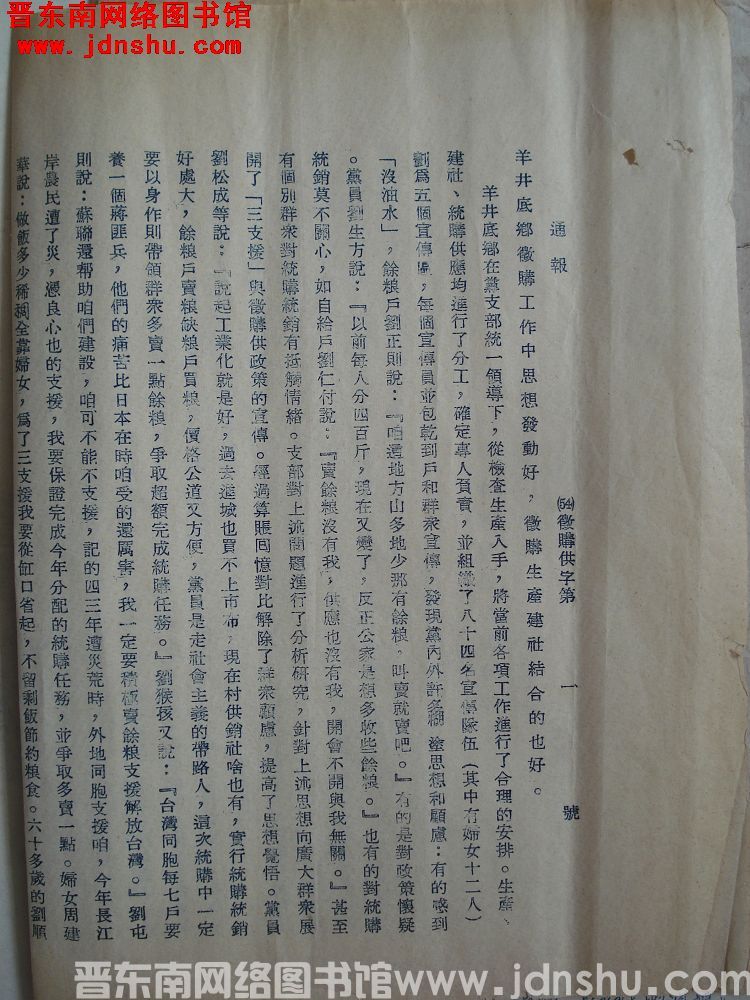 晋东南网络图书馆
www.jdnshu.com
通報
(54)徵購供字第 一 號
羊井底鄉徵購工作中思想發動好,徵購生產建社結合的也好。
羊井底鄉在黨支部統一領導下,從檢査生產入手,將當前各項工作進行了合理的安排。生產、
建社、統購供應均進行了分工,確定專人負責,並組織了八十四名宣傳隊伍(其中有婦女十二人)
劃爲五個宣傳團,每個宣傳員並包乾到戶和群衆宣傳,發現黨內外許多糊塗思想和顧慮:有的感到
「沒油水」,餘粮戶劉正則說:『咱這地方山多地少那有餘粮,叫賣就賣吧。』有的是對政策懷疑
。黨員劉生方說:『以前每人分四百斤,現在又變了,反正公家是想多收些餘粮。』也有的對統購
統銷莫不關心,如自給戶劉仁付說:『賣餘粮沒有我,供應也沒有我,開會不開與我無關。』甚至
有個別群衆對統購統銷有抵觸情緒。支部對上述問題進行了分析研究,針對上述思想向廣大群衆展
開了「三支援」與徵購供政策的宣傳。經過算賬回憶對比解除了群衆顧慮,提高了思想覺悟。黨員
劉松成等說:『說起工業化就是好,過去進城也買不上市布,現在村供銷社啥也有,實行統購統銷
好處大,餘粮戶賣粮缺粮戶買粮,價格公道又方便,黨員是走社會主義的帶路人,這次統購中一定
要以身作則帶領群衆多賣一點餘粮,爭取超額完成統購任務。』劉猴孩又說:『台灣同胞每七戶要
養一個蔣匪兵,他們的痛苦比日本在時咱受的還厲害,我一定要積極賣餘粮支援解放台灣。』劉屯
則說:蘇聯還帮助咱們建設,咱可不能不支援,記的四三年遭災荒時,外地同胞支援咱,今年長江
岸農民遭了災,憑良心也的支援,我要保證完成今年分配的統購任務,並爭取多賣一點。婦女周建
華說:做飯多少稀稠全靠婦女,爲了三支援我要從缸口省起,不留剩飯節約粮食。六十多歲的劉順
晋东南网络图书馆www.jdnshu.com